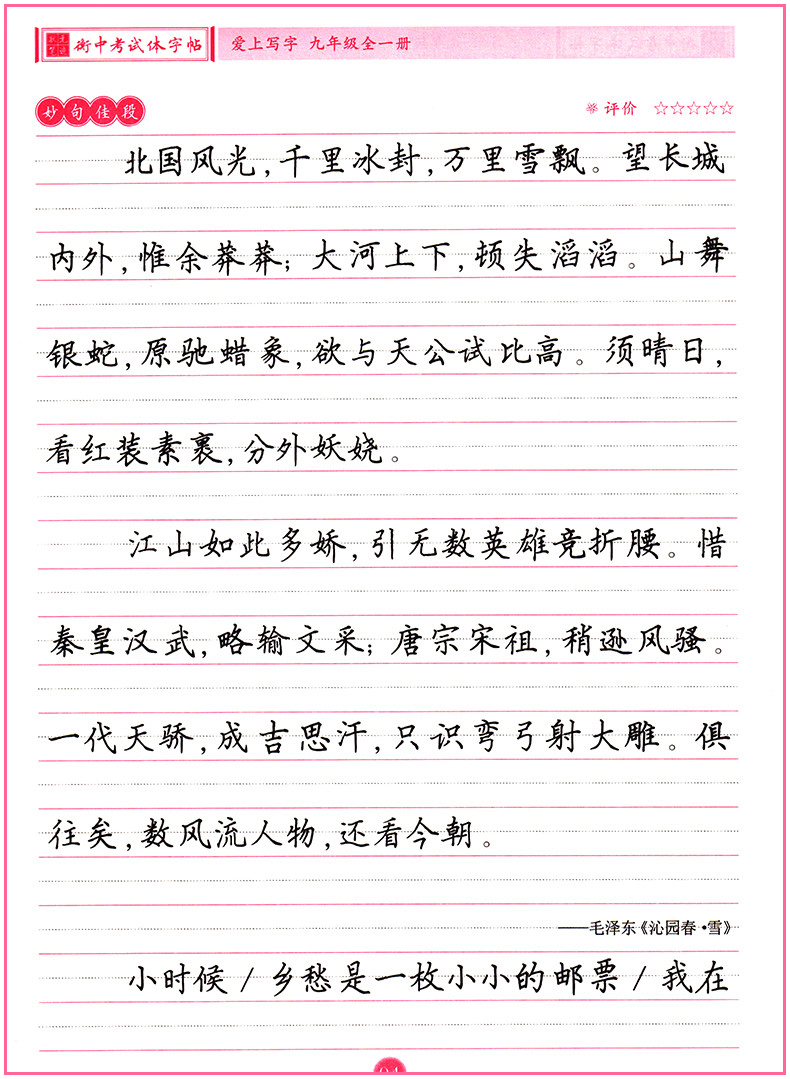 衡中考试体字帖 爱上写字 九年级全一册
妙句佳段 评价 ☆☆☆☆☆
北国风光,千里冰封,万里雪飘。望长城
内外,惟余莽莽;大河上下,顿失滔滔。山舞
银蛇,原驰蜡象,欲与天公试比高。须晴日,
看红装素裹,分外妖娆。
江山如此多娇,引无数英雄竞折腰。惜
秦皇汉武,略输文采;唐宗宋祖,稍逊风骚。
一代天骄,成吉思汗,只识弯弓射大雕。俱
往矣,数风流人物,还看今朝。
——毛泽东《沁园春·雪》
小时候/乡愁是一枚小小的邮票/我在